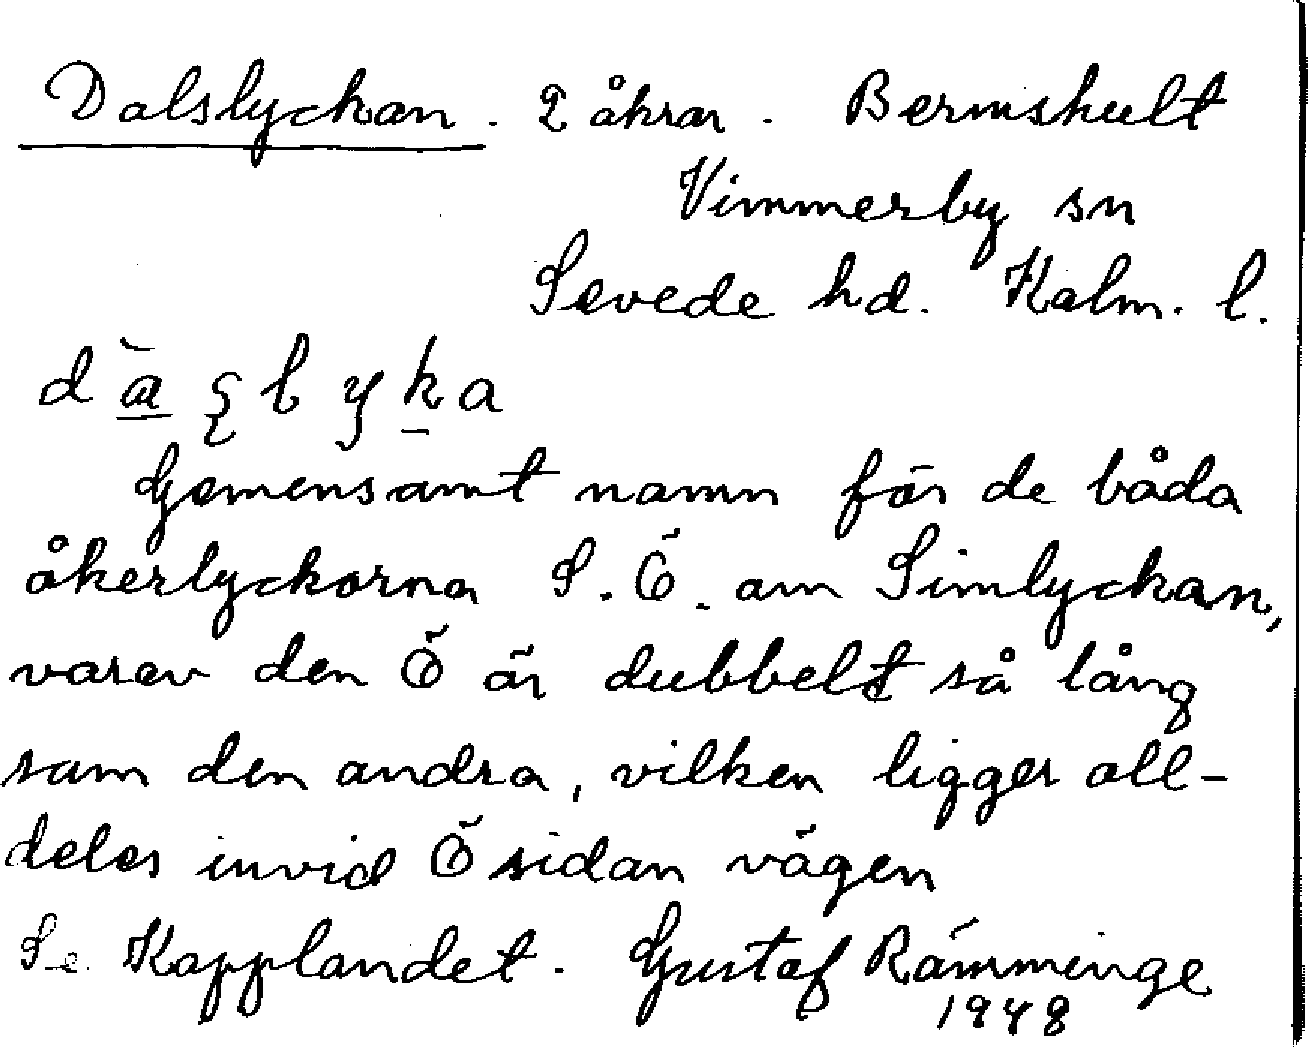 Dalslyckan. 2 åkrar. Bermshult
Vimmerby sn
Sevede hd. Kalm. l.
dàslyka
Gemensamt namn för de båda
åkerlyckorna S. Ö. om Simlyckan,
varav den Ö är dubbelt så lång
som den andra, vilken ligger all-
deles invid Ö sidan vägen
Se Kapplandet. Gustaf Rämminge
1948